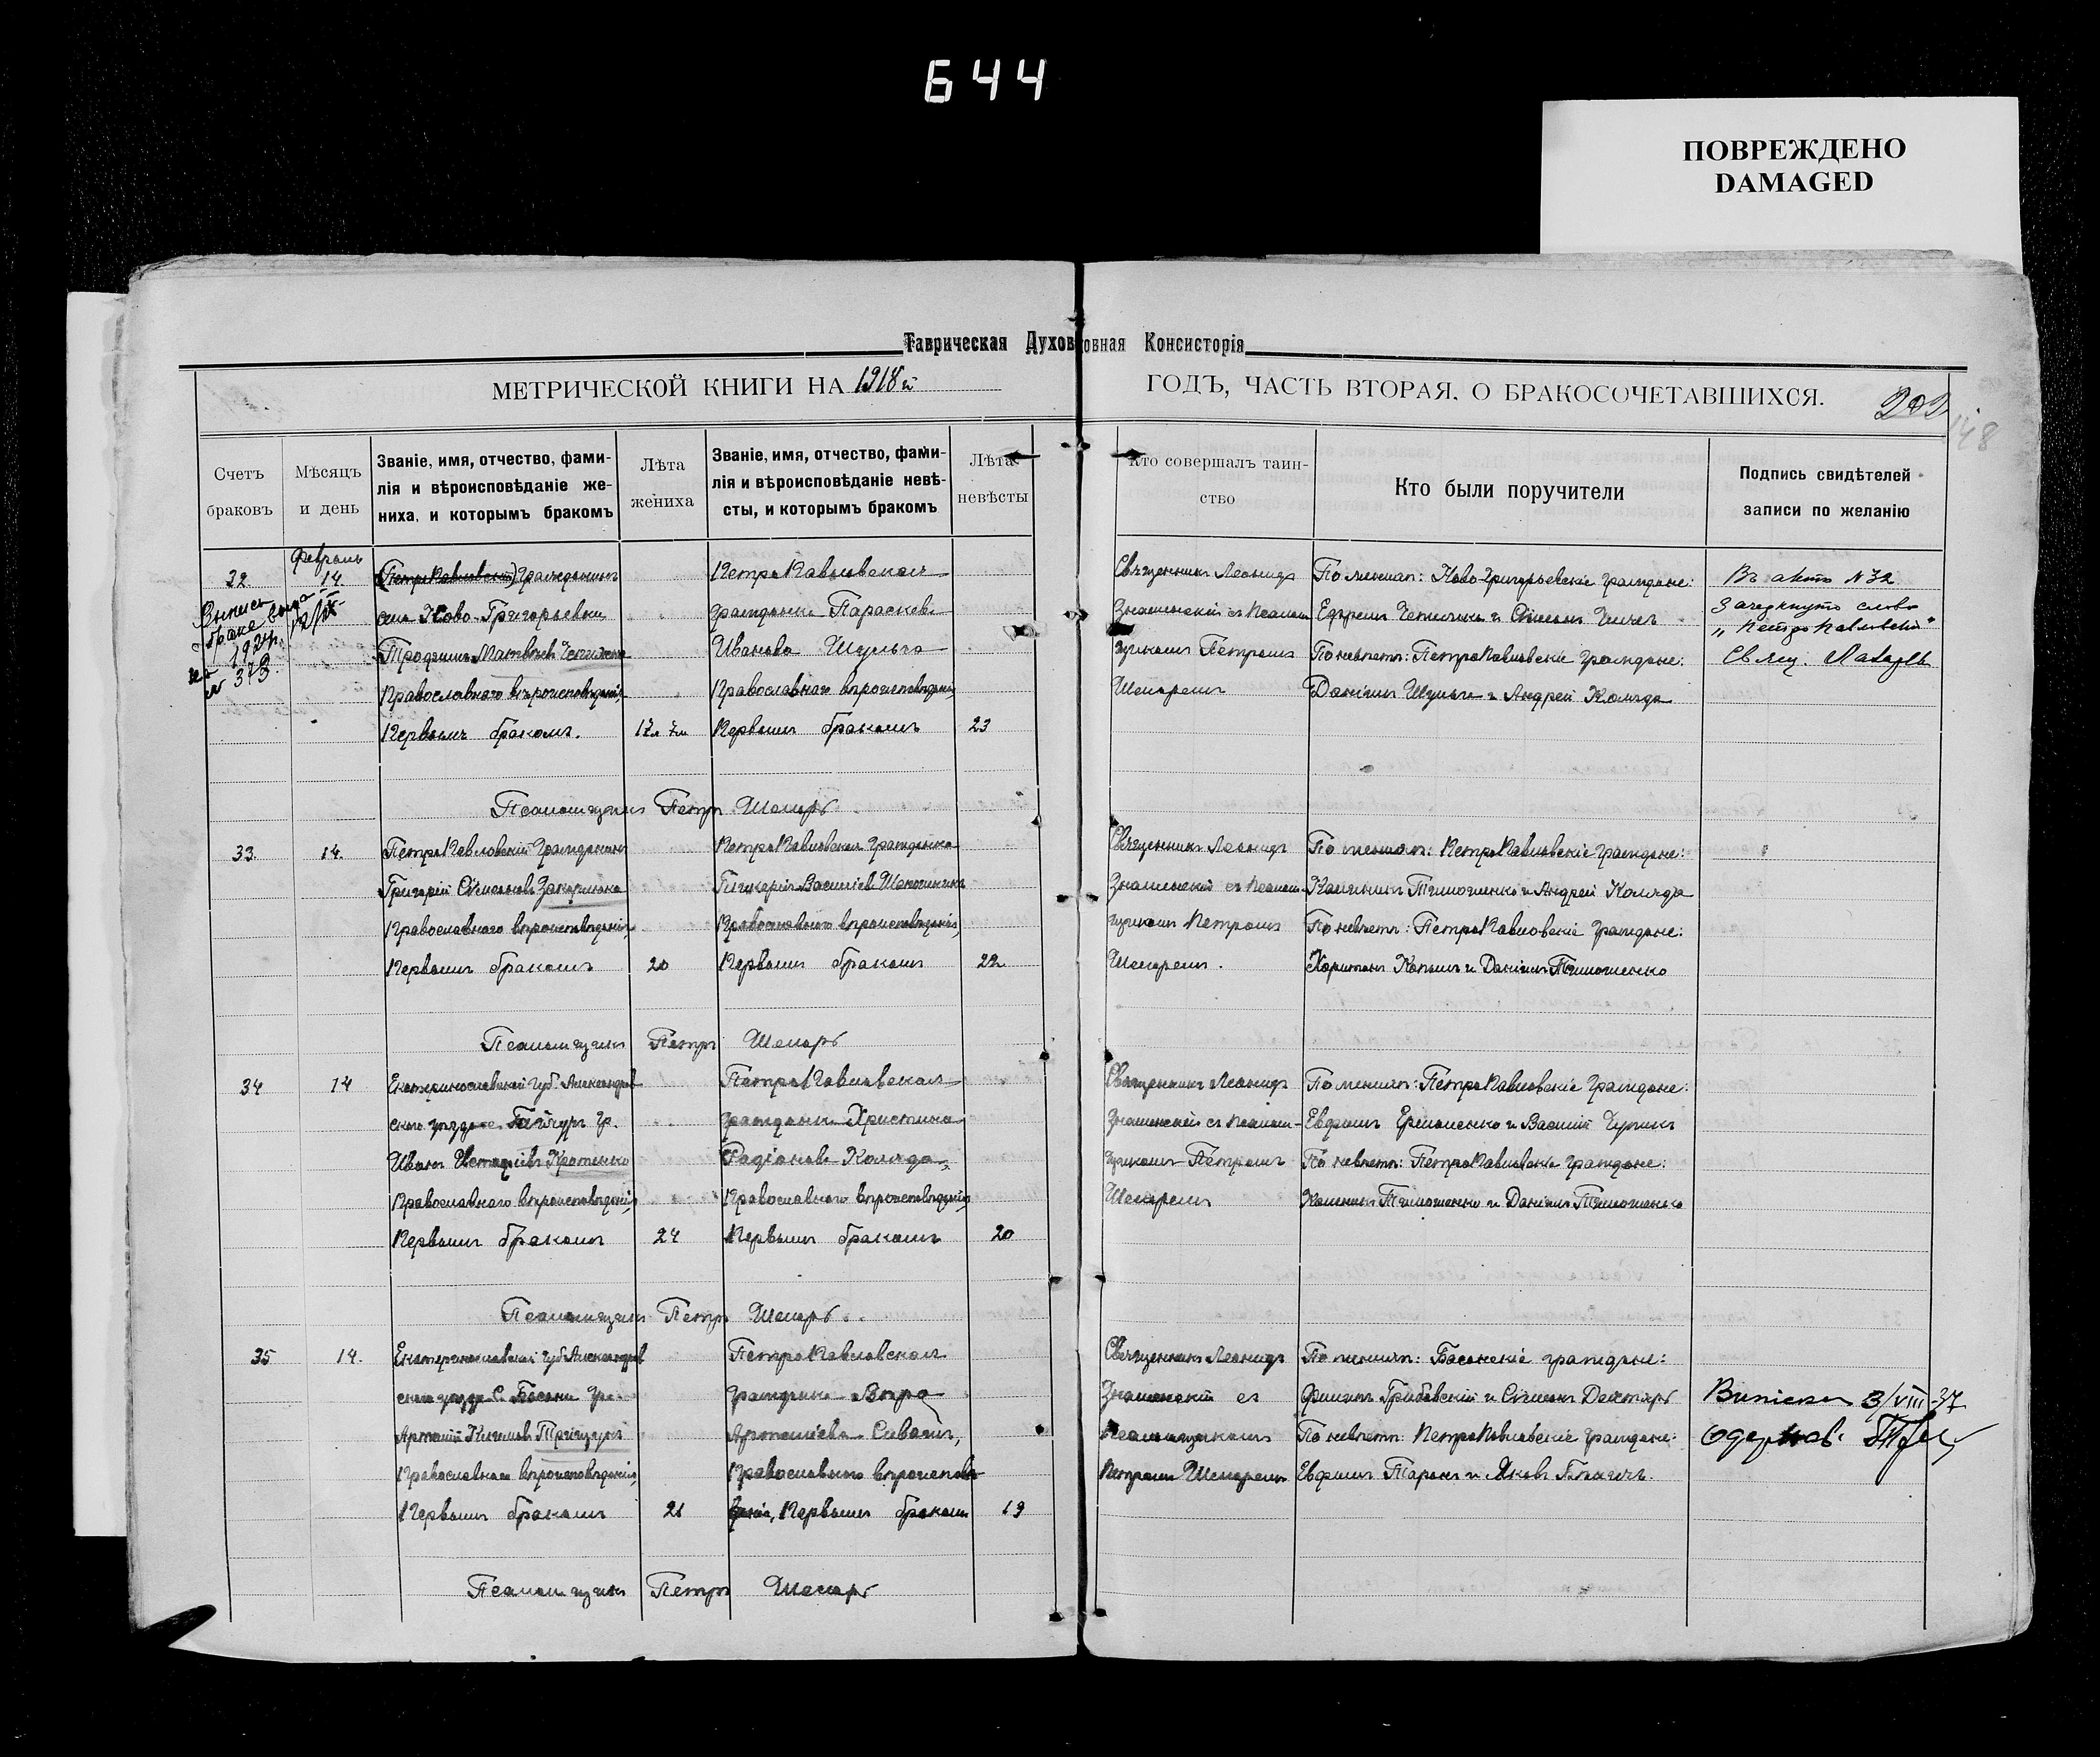 644
ПОВРЕЖДЕНО
DAMAGED
Таврическая Духовная Консисторія
МЕТРИЧЕСКОЙ КНИГИ НА 1918й ГОДЪ, ЧАСТЬ ВТОРАЯ, О БРАКОСОЧЕТАВШИХСЯ.
202
148
Счетъ браковъ
Мѣсяцъ и день
Званіе, имя, отчество, фами-
лія и вѣроисповѣданіе же-
ниха, и которымъ бракомъ
Лѣта жениха
Званіе, имя, отчество, фами-
лія и вѣроисповѣданіе невѣ-
сты, и которымъ бракомъ
Лѣта невѣсты
Кто совершалъ таин-
ство
Кто были поручители
Подпись свидѣтелей
записи по желанію
32
Февраль
14
Выпись
о браке
1924г.
за
№ 373
(Петро Павловскій) Гражданинъ
села Ново-Григорьевки
Трофимъ Матвѣевъ
Православнаго вѣроисповѣданія,
Первымъ бракомъ.
17л 7м
Петро Павловская
гражданка Параскева
Иванова Шульга
Православнаго вѣроисповѣданія
Первымъ бракомъ
23
Священникъ Леонидъ
Знаменскій съ Псалом-
щикомъ Петромъ
Шепаремъ
По женихѣ: Ново-Григорьевскіе граждане:
Ефремъ и Симеонъ
По невѣстѣ: Петро Павловскіе граждане:
Даніилъ Шульга и Андрей Коляда
Въ актѣ №32
Зачеркнуто слово
„Петро Павловскій"
Свящ.
Псаломщикъ Петръ Шепарь
33.
14.
Петро Павловскій Гражданинъ
Григорій Симеоновъ
Православнаго вѣроисповѣданія,
Первымъ бракомъ
20
Петро Павловская Гражданка
Гликерія Василіева
Православнаго вѣроисповѣданія,
Первымъ бракомъ
22
Священникъ Леонидъ
Знаменскій съ Псалом-
щикомъ Петромъ
Шепаремъ.
По женихѣ: Петро Павловскіе граждане:
Каленикъ Тимошенко и Андрей Коляда
По невѣстѣ: Петро Павловскіе граждане:
Харитонъ и Даніилъ Тимошенко
Псаломщикъ Петръ Шепарь
34
14
Екатеринославской губ. Александров
скаго уѣзда с. Гайчуръ гр.
Иванъ Кратенко
Православнаго вѣроисповѣданія,
Первымъ бракомъ
24
Петро Павловская
гражданка Христина
Радіонова Коляда,
Православнаго вѣроисповѣданія,
Первымъ бракомъ
20
Священникъ Леонидъ
Знаменскій съ Псалом-
щикомъ Петромъ
Шепаремъ
По женихѣ: Петро Павловскіе граждане:
Евфимъ Ермоленко и Василій Чуприкъ
По невѣстѣ: Петро Павловскіе граждане:
Каленикъ Тимошенко и Даніилъ Тимошенко
Псаломщикъ Петръ Шепарь.
35
14.
Екатеринославской губ. Александров
скаго уѣзда С. Басани гр.
Православнаго вѣроисповѣданія,
Первымъ бракомъ
21
Петро Павловская
гражданка Вѣра
Савогинъ,
Православнаго вѣроисповѣ-
данія, Первымъ бракомъ
19
Священникъ Леонидъ
Знаменскій съ
Псаломщикомъ
Петромъ Шепаремъ
По женихѣ: Басанскіе граждане:
Филипъ Грибовскій и Симеонъ Дегтярь
По невѣстѣ: Петро Павловскіе граждане:
Евфимъ Таранъ и Яковъ
3/VIII-37
одержав.
Псаломщикъ Петръ Шепарь